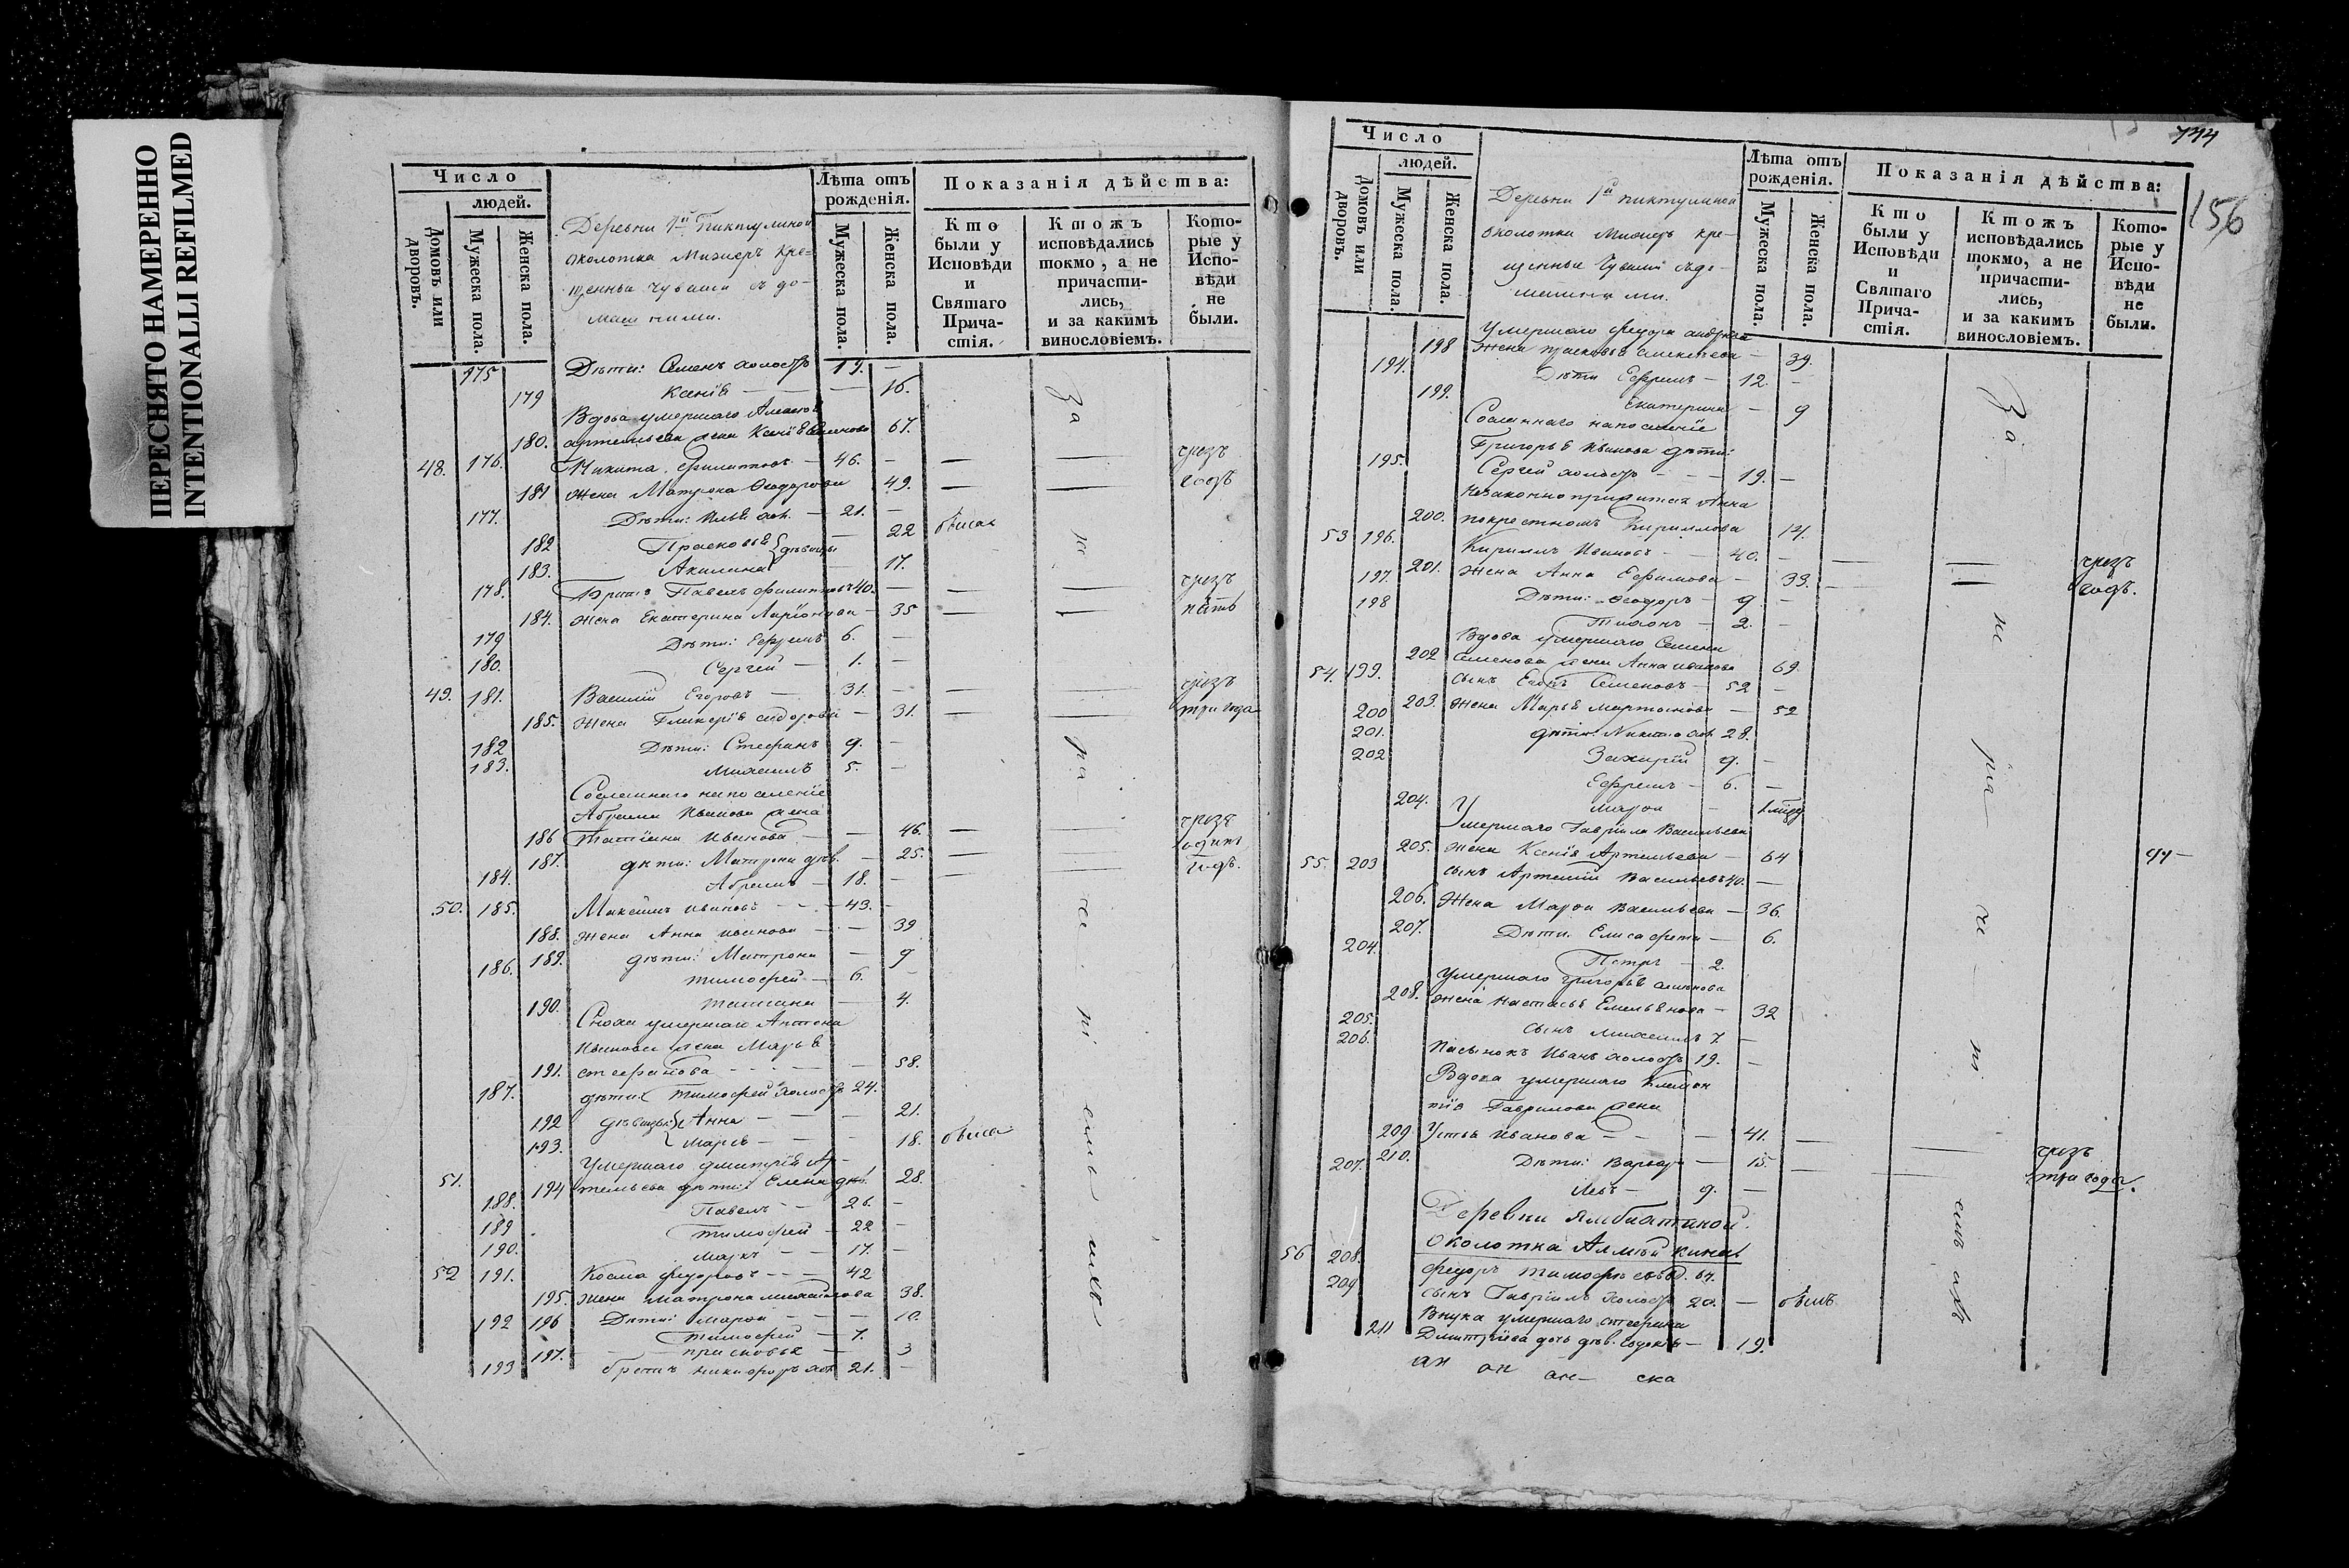 ПЕРЕСНЯТО НАМЕРЕННО
INTENTIONALLI REFILMED
Число
людей.
Домовъ или дворовъ.
Мужеска пола.
Женска пола.
Деревни 1й Пиктулиной
околотка Мижеръ Кре-
щенныя Чуваши съ до-
машними.
Лѣта отъ рожденія.
Мужеска пола.
Женска пола.
Показанія дѣйства:
Кто были у Исповѣди и Святаго Причастія.
Ктожъ исповѣдались токмо, а не причастились, и за какимъ винословіемъ.
Которые у Исповѣди не были.
175 Дѣти: Семенъ холостъ 19. —
179 Ксенія — 16.
Вдова умершаго
180. артемьева жена Ксенія 67.
48. 176. Никита Филиповъ — 46. — чрезъ
181 Жена Матрона Ѳеодорова 49. — годъ
177. Дѣти: Илья хол. — 21. —
182 Прасковья дѣвицы 22
183. Акилина 17.
178. Братъ Павелъ Филиповъ 40. — чрезъ
184. Жена Екатерина Ларіонова — 35
179 Дѣти: Ефремъ 6. —
180. Сергей — 1. —
49. 181. Василій Егоровъ — 31. — чрезъ
185. Жена Гликерія Сидорова — 31. — три года
182 Дѣти: Стефанъ 9. —
183. Михаилъ 5. —
Сосланнаго на поселеніе
Абрама Иванова жена
186 Татіана Иванова — 46. — чрезъ
187. дѣти: Матрона дѣв. — 25. — одинъ
184. Абрамъ — 18. — годъ.
50. 185. Максимъ Ивановъ — 43. —
188. Жена Анна Иванова — 39
189. дѣти: Матрона — 9
186. Тимофей — 6. —
190. Татіана — 4.
Сноха умершаго Антона
Иванова жена Марья
191. Стефанова — 58.
187. дѣти: Тимофей холостъ 24.
192 дѣвицы Анна — 21.
193. Марья — 18.
Умершаго Дмитрія Ар-
51. 194 темьева дѣти: Елена дѣв. 28.
188. Павелъ — 26. —
189 Тимофей — 22 —
190. Маркъ — 17. —
52 191. Косма Федоровъ — 42
195. Жена Матрона Михайлова 38.
196 Дѣти: Марѳа — 10.
192 Тимофей — 7. —
197. Прасковья — 3
193 братъ Никифоръ хол. 21. —
За
не
ра
че
ні
емъ
ихъ
744
156
Число
людей.
Домовъ или дворовъ.
Мужеска пола.
Женска пола.
Деревни 1й пиктулиной
околотка Мижеръ кре-
щенныя Чуваши съ до-
машними.
Лѣта отъ рожденія.
Мужеска пола.
Женска пола.
Показанія дѣйства:
Кто были у Исповѣди и Святаго Причастія.
Ктожъ исповѣдались токмо, а не причастились, и за какимъ винословіемъ.
Которые у Исповѣди не были.
Умершаго Федора
198 Жена Прасковья Алексѣева — 39.
194. Дѣти Ефремъ — 12. —
199. Екатерина — 9
Сосланнаго на поселеніе
Григорья Иванова дѣти:
195. Сергей холостъ — 19. —
Незаконно прижитая Анна
200. по крестномъ Кириллова 14.
53 196. Кириллъ Ивановъ — 40. — чрезъ
201. Жена Анна Ефимова — 33. — годъ.
197. Дѣти: Ѳеодоръ — 9. —
198 Тихонъ — 2. —
Вдова умершаго Семена
202 Семенова жена Анна Иванова 69.
54. 199. Сынъ Семеновъ — 52 —
203. Жена Марья Мартынова — 52
200 дѣти: Никита хол. 28.
201. Захарій 9. —
202 Ефремъ — 6. —
204. Марѳа —
Умершаго Гавріила Васильева
205. Жена Ксенія Артемьева — 64
55. 203 Сынъ Артемій Васильевъ 40. —
206. Жена Марѳа Васильева — 36.
207. Дѣти: Елисавета — 6.
204. Петръ — 2.
Умершаго Григорья
208. Жена Настасья Емельянова — 32
205. Сынъ Михаилъ 7. —
206. Пасынокъ Иванъ холостъ 19. —
Вдова умершаго Клемен
тія Гаврилова жена
209 Устья Иванова — 41. — чрезъ
210. Дѣти: Варвар — 15. — три года.
207. Левъ — 9. —
Деревни Ямбахтиной
околотка
56 208. Федоръ Тимофеевъ 64.
209 Сынъ Гавріилъ холостъ 20. —
Внука умершаго Стефана
211 Дмитріева дочь дѣв. — 19.
За
не
ра
че
ні
емъ
ихъ